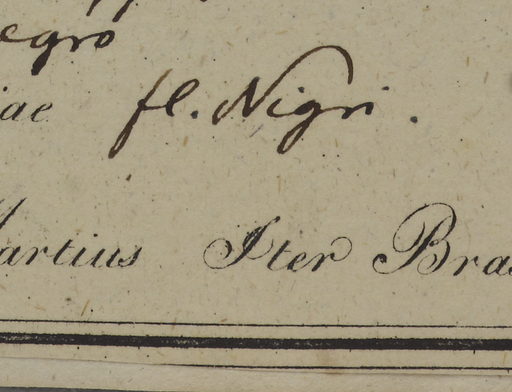 egro
iae fl. Nigri.
artius Iter Bras